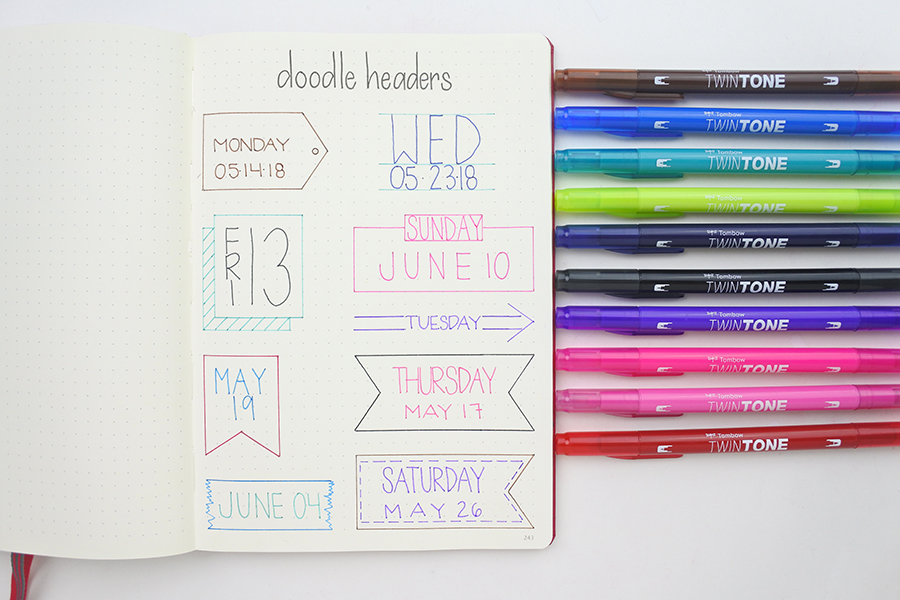 doodle headers
MONDAY
05·14·18
WED
05·23·18
FRI 13
SUNDAY
JUNE 10
TUESDAY
MAY
19
THURSDAY
MAY 17
JUNE 04
SATURDAY
MAY 26
241
Tombow
TWINTONE
Tombow
TWINTONE
Tombow
TWINTONE
Tombow
TWINTONE
Tombow
TWINTONE
Tombow
TWINTONE
Tombow
TWINTONE
Tombow
TWINTONE
Tombow
TWINTONE
Tombow
TWINTONE